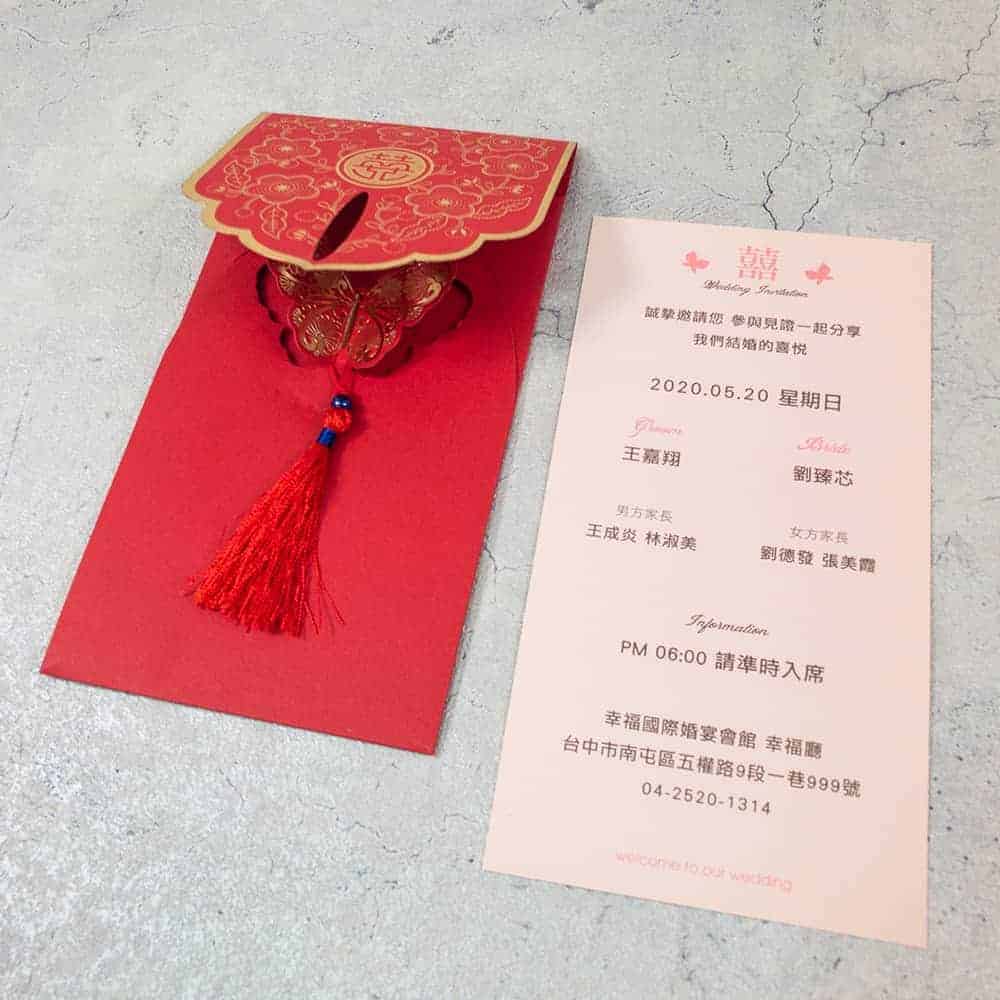 囍
囍
Wedding Invitation
誠摯邀請您 參與見證一起分享
我們結婚的喜悅
2020.05.20 星期日
Groom
Bride
王嘉翔
劉臻芯
男方家長
女方家長
王成炎 林淑美
劉德發 張美霞
Information
PM 06:00 請準時入席
幸福國際婚宴會館 幸福廳
台中市南屯區五權路9段一巷999號
04-2520-1314
welcome to our wedding